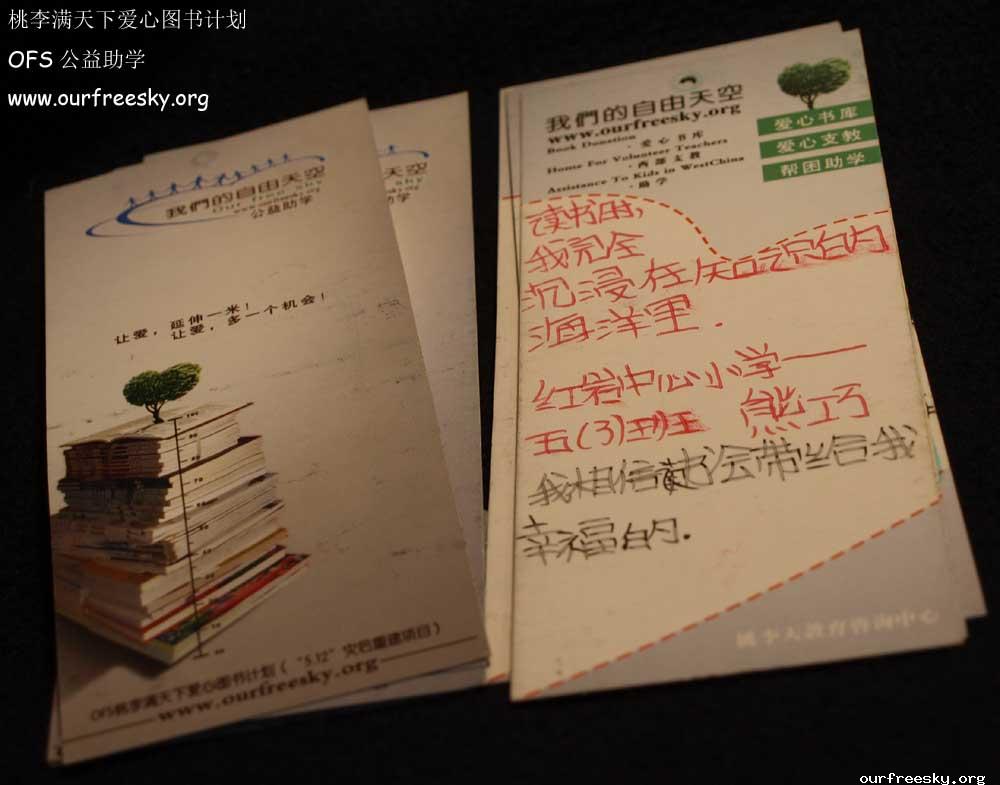 桃李满天下爱心图书计划
OFS 公益助学
www.ourfreesky.org
我們的自由天空
Our free sky
www.ourfreesky.org
公益助学
让爱，延伸一米！
让爱，多一个机会！
OFS桃李满天下爱心图书计划（“5.12”灾后重建项目）
www.ourfreesky.org
我們的自由天空
www.ourfreesky.org
Book Donation
·爱心书库
Home For Volunteer Teachers
·西部支教
Assistance To Kids in WestChina
·助学
爱心书库
爱心支教
帮困助学
读书时，
我完全
沉浸在知识的
海洋里．
红岩中心小学——
五(3)班 熊巧
我相信书会带给我
幸福的.
桃李天教育咨询中心
ourfreesky.org